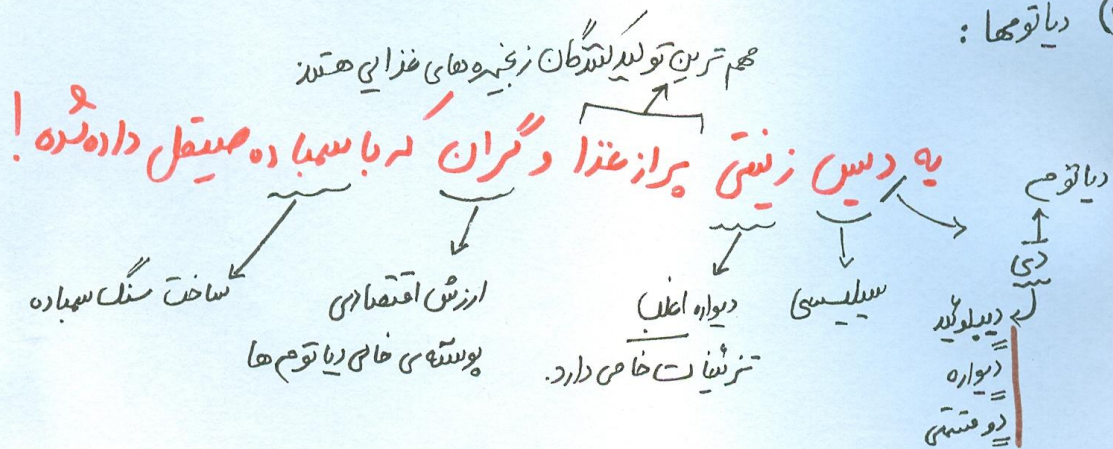 دیاتومها :
مهم ترین تولیدکنندگان زنجیره های غذایی هستند
یه دیس زینتی پر از غذا و گران که با سمباده صیقل داده شده !
دیاتوم
دی
دیپلوئید
دیواره
دو قسمتی
سیلیسی
دیواره اغلب
تزئینات خاصی دارد.
ارزش اقتصادی
پوسته ی خالی دیاتوم ها
ساخت سنگ سمباده